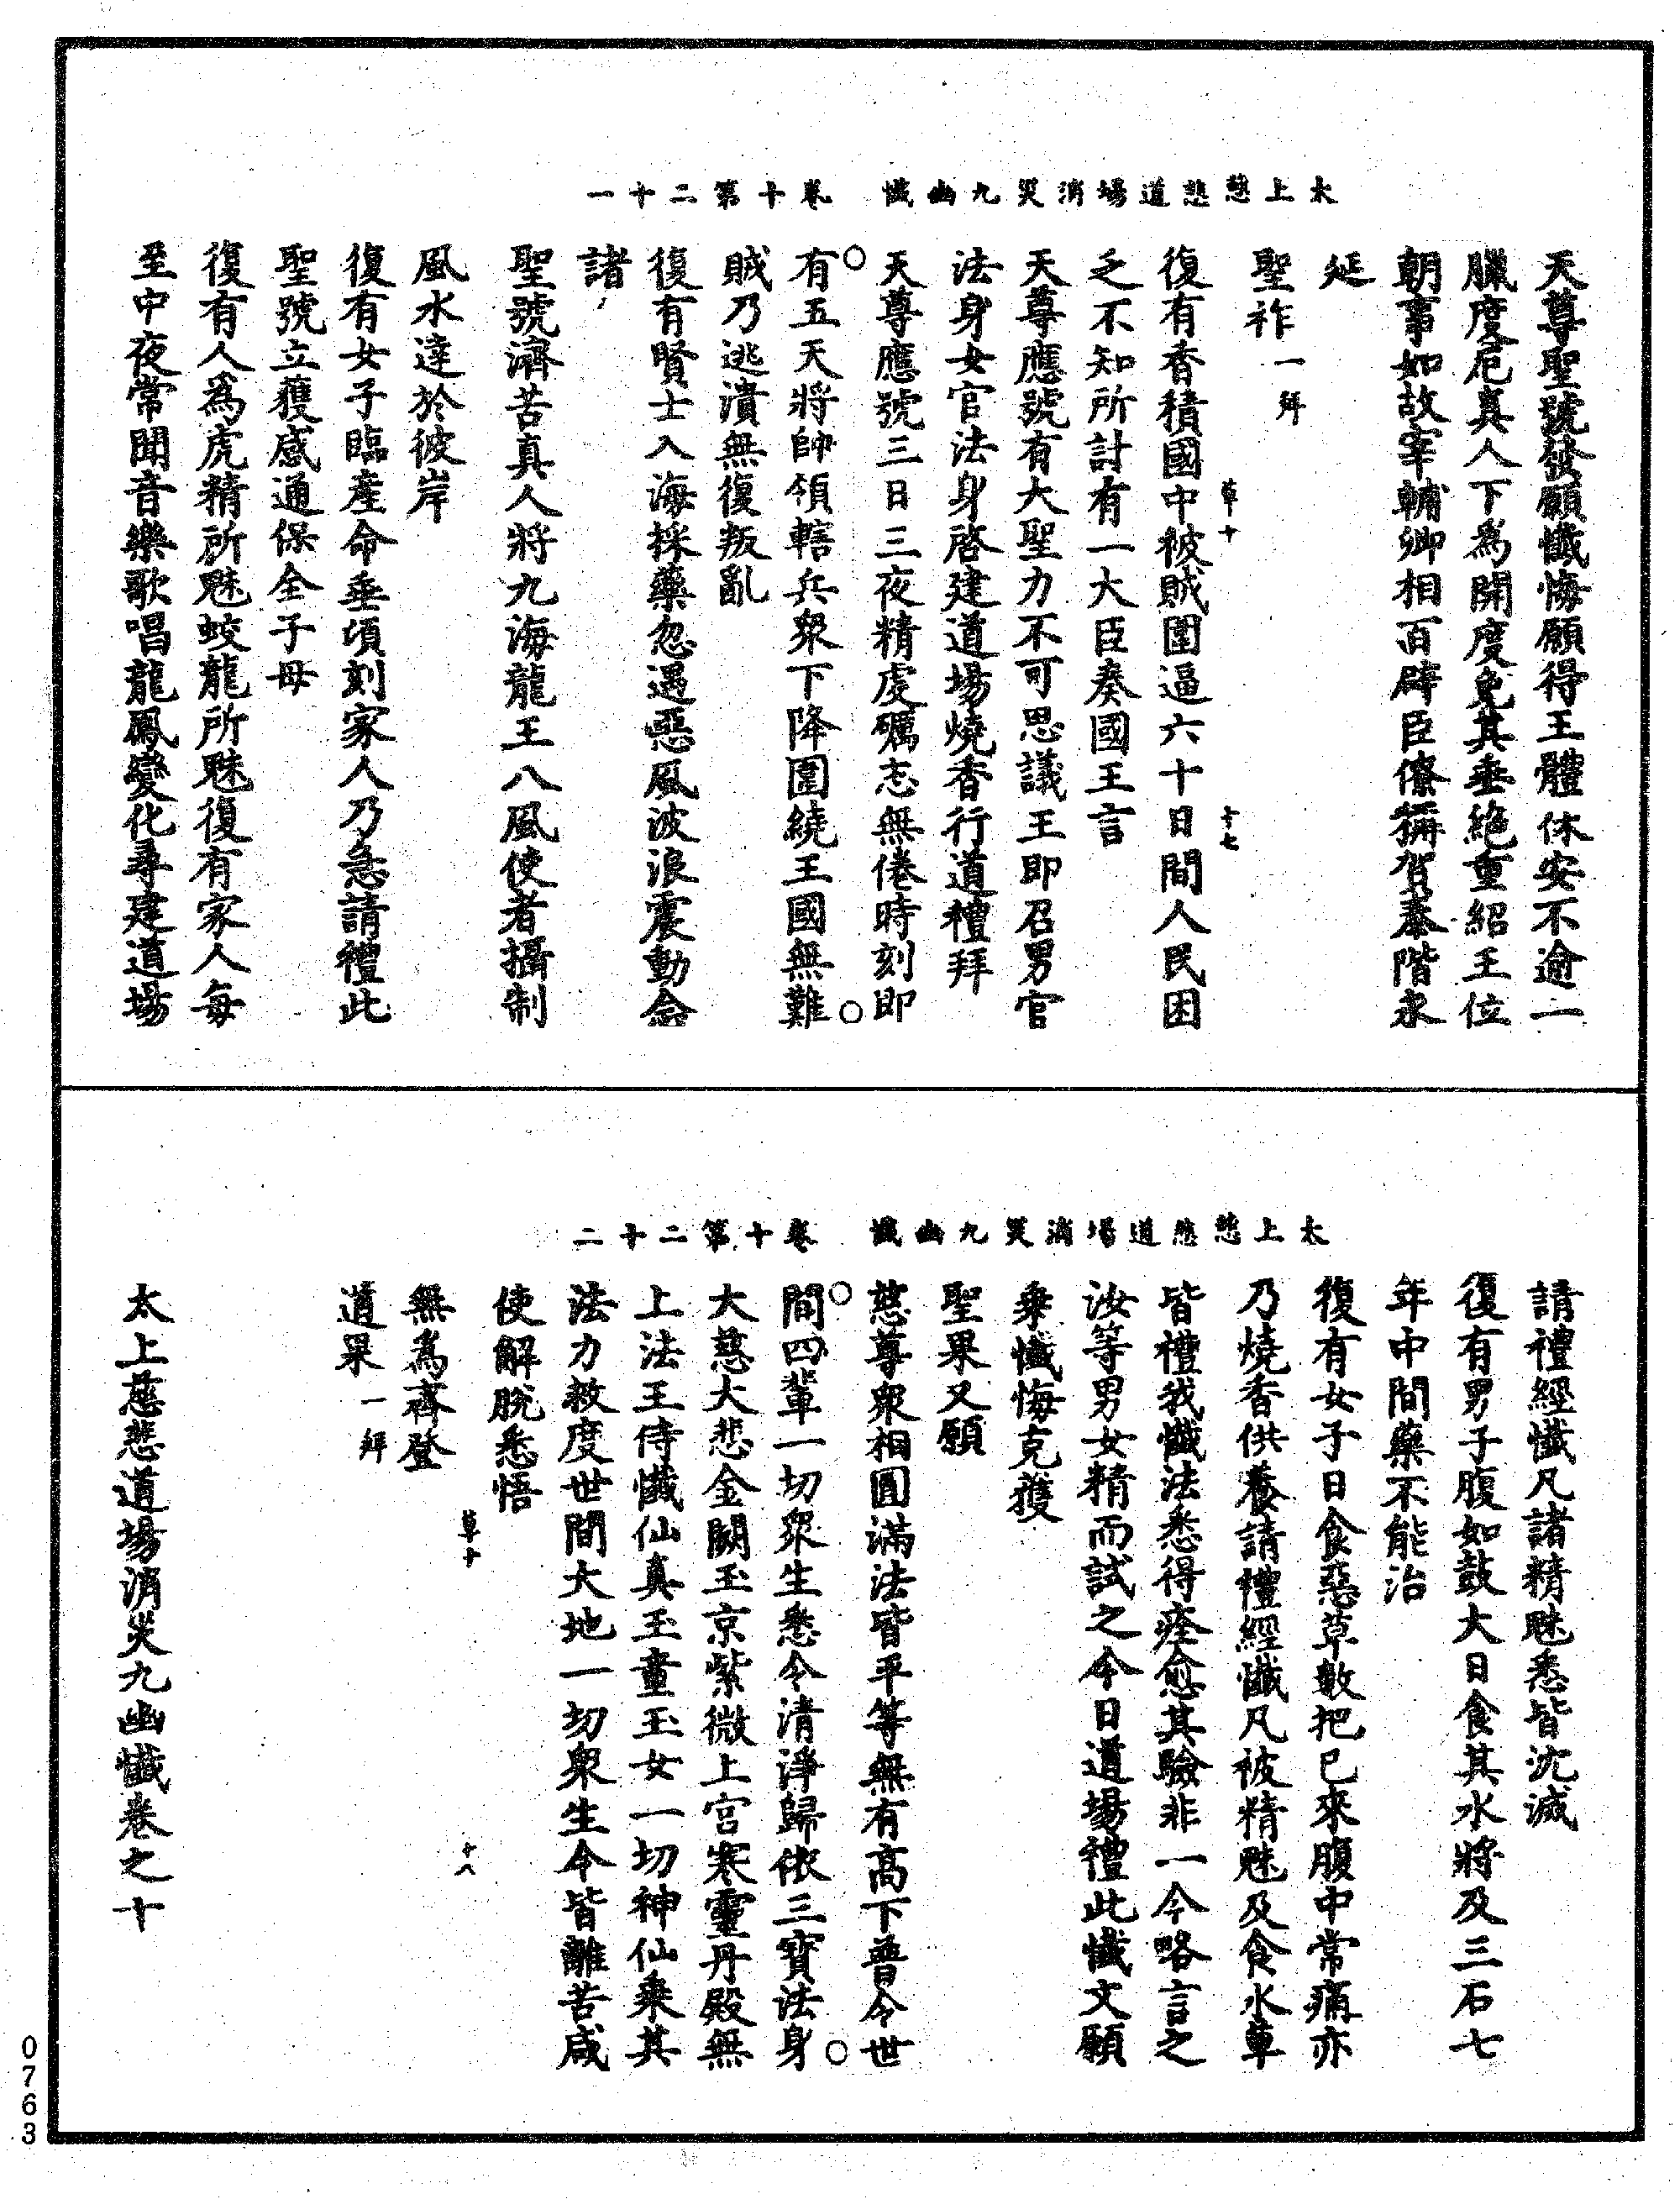 太上慈悲道場消災九幽懺　卷十第二十一
天尊聖號發願懺悔願得王體休安不逾一
臘度厄真人下為開度免其垂絕重紹王位
朝事如故宰輔卿相百辟臣僚稱賀泰階永
延
聖祚一拜
草十　十七
復有香積國中被賊圍逼六十日間人民困
乏不知所計有一大臣奏國王言
天尊應號有大聖力不可思議王即召男官
法身女官法身啓建道場燒香行道禮拜
天尊應號三日三夜精虔礪志無倦時刻即
有五天將帥領轄兵衆下降圍繞王國無難
賊乃逃潰無復叛亂
復有賢士入海採藥忽遇惡風波浪震動念
諸
聖號濟苦真人將九海龍王八風使者攝制
風水達於彼岸
復有女子臨產命垂頃刻家人乃急請禮此
聖號立獲感通保全子母
復有人為虎精所魅蛟龍所魅復有家人每
至中夜常聞音樂歌唱龍鳳變化尋建道場
太上慈悲道場消災九幽懺　卷十第二十二
請禮經懺凡諸精魅悉皆沈滅
復有男子腹如鼓大日食其水將及三石七
年中間藥不能治
復有女子日食惡草數把已來腹中常痛亦
乃燒香供養請禮經懺凡被精魅及食水草
皆禮我懺法悉得痊愈其驗非一今略言之
汝等男女精而試之今日道場禮此懺文願
乗懺悔克獲
聖果又願
慈尊衆相圓滿法皆平等無有高下普令世
間四輩一切衆生悉令清淨歸依三寶法身
大慈大悲金闕玉京紫微上宮寒靈丹殿無
上法王侍懺仙真玉童玉女一切神仙乗其
法力救度世間大地一切衆生今皆離苦咸
使解脫悉悟
草十　十八
無為齊登
道果一拜
太上慈悲道場消災九幽懺卷之十
0763